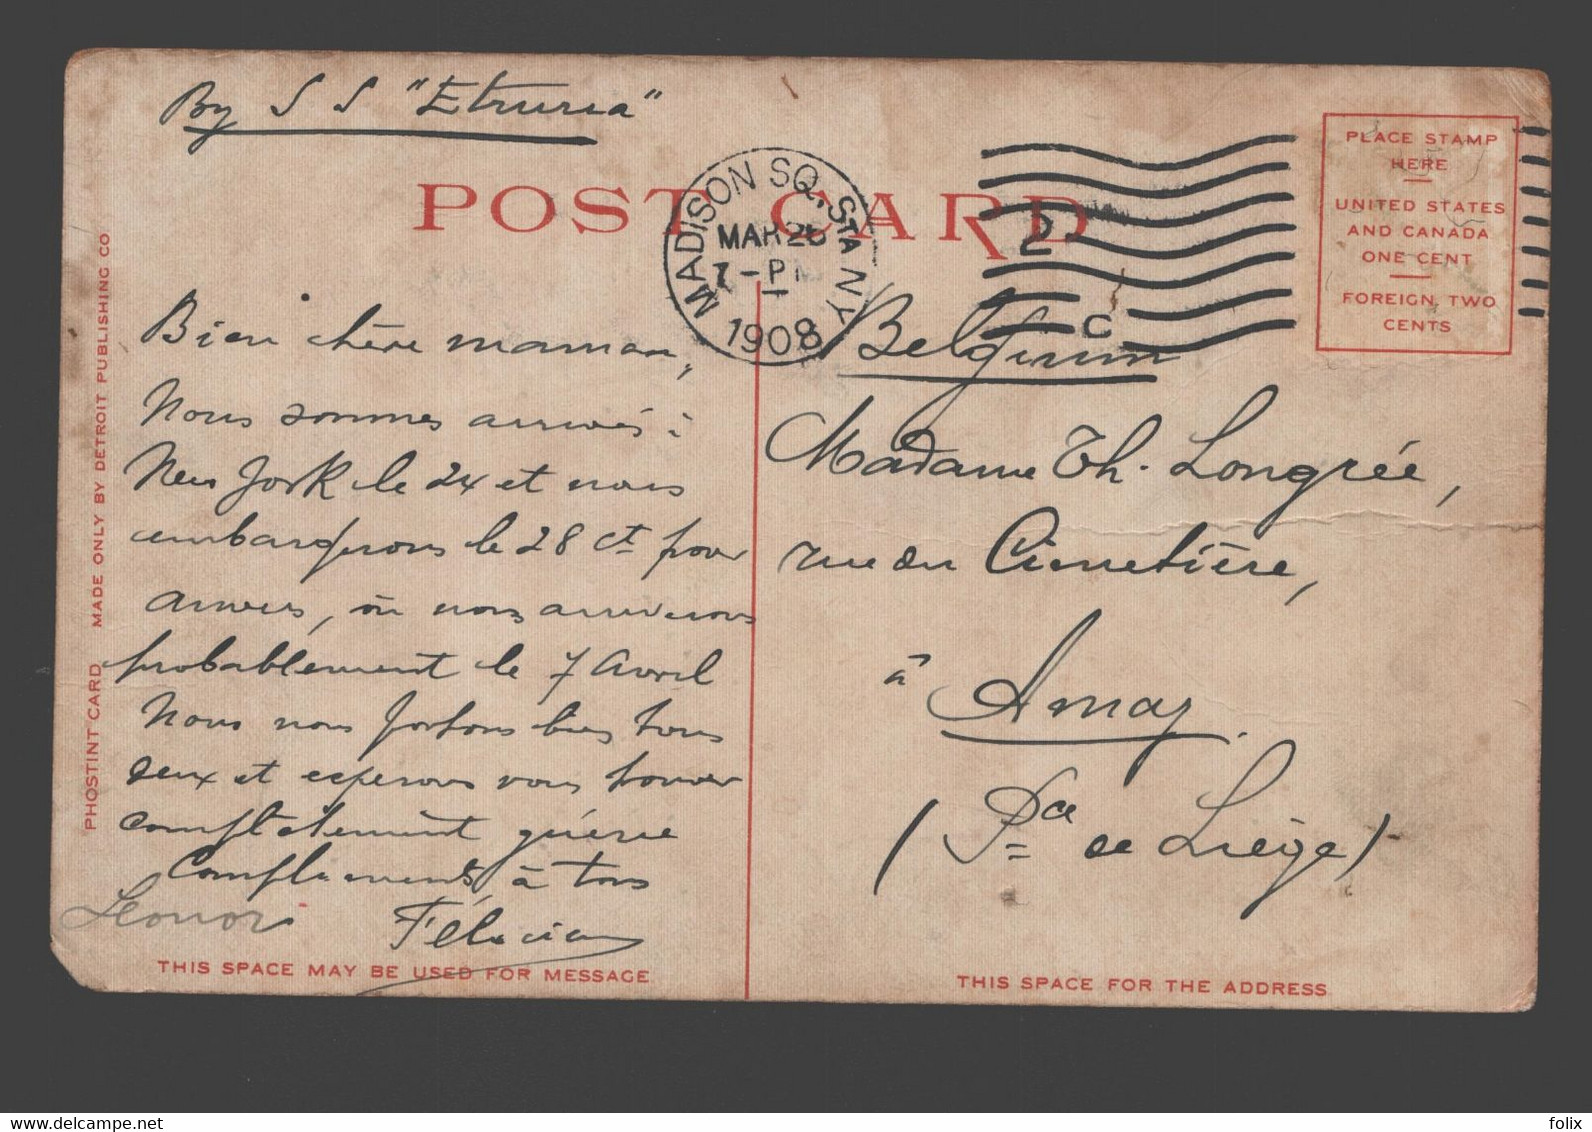 By S S "Etruria"
POST CARD
MADISON SQ. STA NY
MAR 26
7-PM
1908
2
C
PLACE STAMP
HERE
UNITED STATES
AND CANADA
ONE CENT
FOREIGN, TWO
CENTS
PHOSTINT CARD MADE ONLY BY DETROIT PUBLISHING CO
Bien chère maman,
Nous sommes arrivés à
New York le 24 et nous
embarquerons le 28 ct pour
Anvers, où nous arriverons
probablement le 7 avril
Nous nous portons bien tous
deux et esperons vous trouver
complètement guérie
Compliments à tous
Leonor
Félicien
Belgium
Madame Th. Longrée,
rue du Cimetière,
à Amay.
(Pce de Liège)
THIS SPACE MAY BE USED FOR MESSAGE
THIS SPACE FOR THE ADDRESS
folix